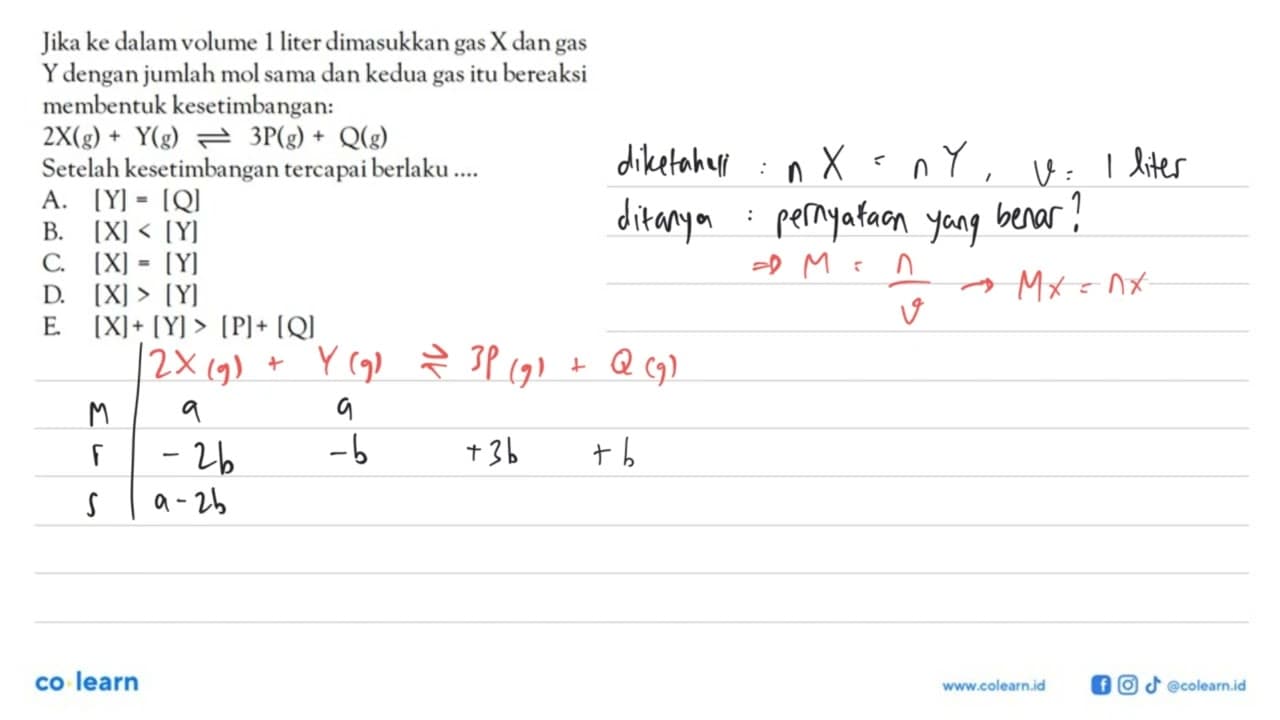 Jika ke dalam volume 1 liter dimasukkan gas X dan gas
Y dengan jumlah mol sama dan kedua gas itu bereaksi
membentuk kesetimbangan:
2X(g) + Y(g) ⇌ 3P(g) + Q(g)
Setelah kesetimbangan tercapai berlaku ....
A. [Y] = [Q]
B. [X] < [Y]
C. [X] = [Y]
D. [X] > [Y]
E. [X]+ [Y] > [P]+ [Q]
diketahui : n X = n Y, v = 1 liter
ditanya : pernyataan yang benar?
⇒ M = n/v → Mx = nx
2X (g) + Y (g) ⇌ 3P (g) + Q (g)
M a a
r - 2b -b +3b + b
s a - 2b
co learn
www.colearn.id
@colearn.id